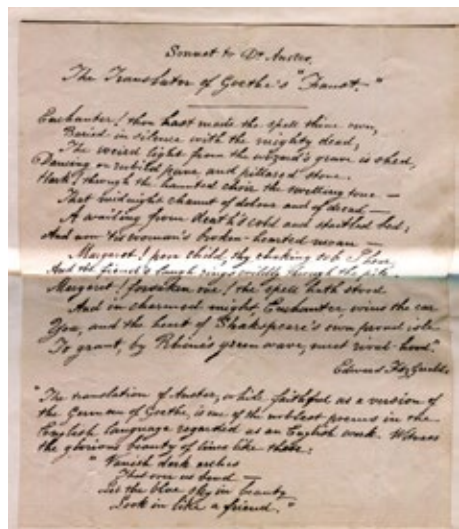 Sonnet to Dr. Anster.
The Translator of Goethe's "Faust."
Enchanter! thou hast made the spell thine own,
Buried in silence with the mighty dead,
The weird light from the wizard's grave is shed,
Dancing on rubied pane, and pillared stone.
Hark! through the haunted choir the swelling tone —
That midnight chaunt of dolour and of dread —
A wailing from death's cold and startled bed;
And now 'tis woman's broken-hearted moan —
Margaret! poor child, thy choking sob I hear
And the friend's laugh rings wildly through the
Margaret! forsaken one! the spell hath stood
And in charmed might, Enchanter, wins the ear
You, and the heart of Shakspeare's own proud isle
To grant, by Rhine's green wave, meet rival-hood."
Edward FitzGerald.
"The translation of Anster, while faithful as a version of
the German of Goethe, is one of the noblest poems in the
English language regarded as an English work. Witness
the glorious beauty of lines like these:
"Vanish dark arches
That over us bend —
Let the blue sky in beauty
Look in like a friend."